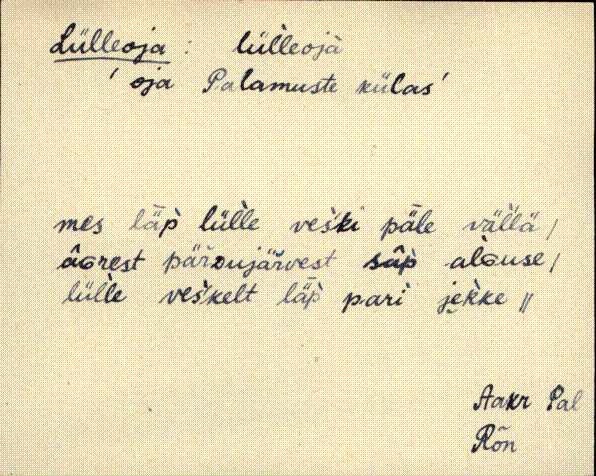 Lülleoja : lül̀leojà
' oja Palamuste külas'
mes lä̆p̀ lül̀le veški päle väl̀lä /
âGrest pärDujärvest sâp̀ alGuse /
lül̀le veškelt lä̆p̀ pari jek̀ke //
Aakr Pal
Rõn